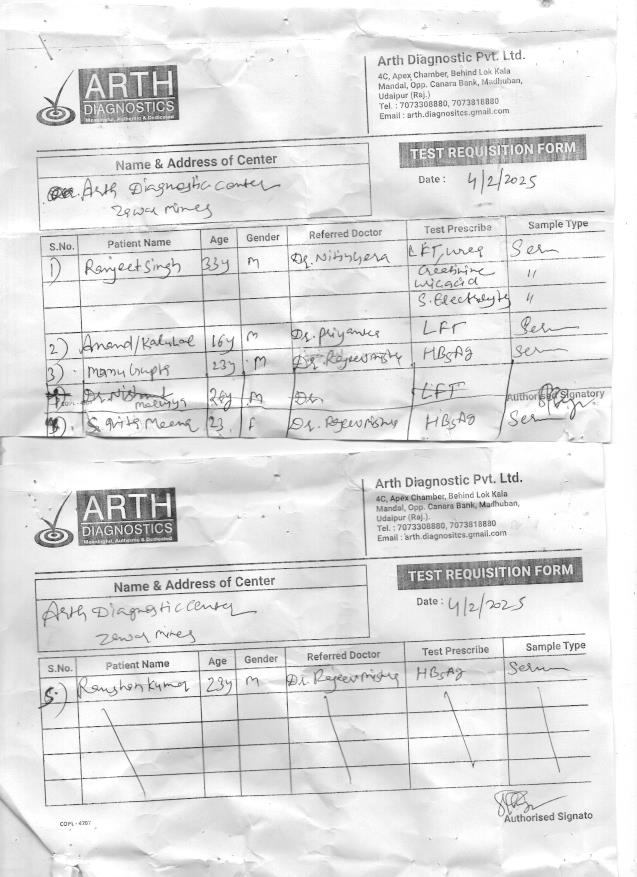 ARTH
DIAGNOSTICS
Meaningful, Authentic & Dedicated
Arth Diagnostic Pvt. Ltd.
4C, Apex Chamber, Behind Lok Kala
Mandal, Opp. Canara Bank, Madhuban,
Udaipur (Raj.)
Tel. : 7073308880, 7073818880
Email : arth.diagnositcs.gmail.com
Name & Address of Center
TEST REQUISITION FORM
Arth Diagnostic Center
Zewar mines
Date : 4/2/2025
S.No. Patient Name Age Gender Referred Doctor Test Prescribe Sample Type
1) Ranjeet Singh 33y M Dr. LFT, urea Serum
Creatinine "
uricacid
S. Electrolyte "
2) Anand/Kalulal 16y M Dr. Priyanka LFT Serum
3) Manu Gupta 23y M Dr. Rajeev mishra HBsAg Serum
4) Dr. Nishant 28y M Dr. LFT
Authorised Signatory
5) Savita Meena 23 F Dr. Rajeev mishra HBsAg Serum
ARTH
DIAGNOSTICS
Meaningful, Authentic & Dedicated
Arth Diagnostic Pvt. Ltd.
4C, Apex Chamber, Behind Lok Kala
Mandal, Opp. Canara Bank, Madhuban,
Udaipur (Raj.).
Tel. : 7073308880, 7073818880
Email : arth.diagnositcs.gmail.com
Name & Address of Center
TEST REQUISITION FORM
Arth Diagnostic Center
Zewar mines
Date : 4/2/2025
S.No. Patient Name Age Gender Referred Doctor Test Prescribe Sample Type
5) Raushan Kumar 23y M Dr. Rajeev mishra HBsAg Serum
COPL - 4707
Authorised Signato